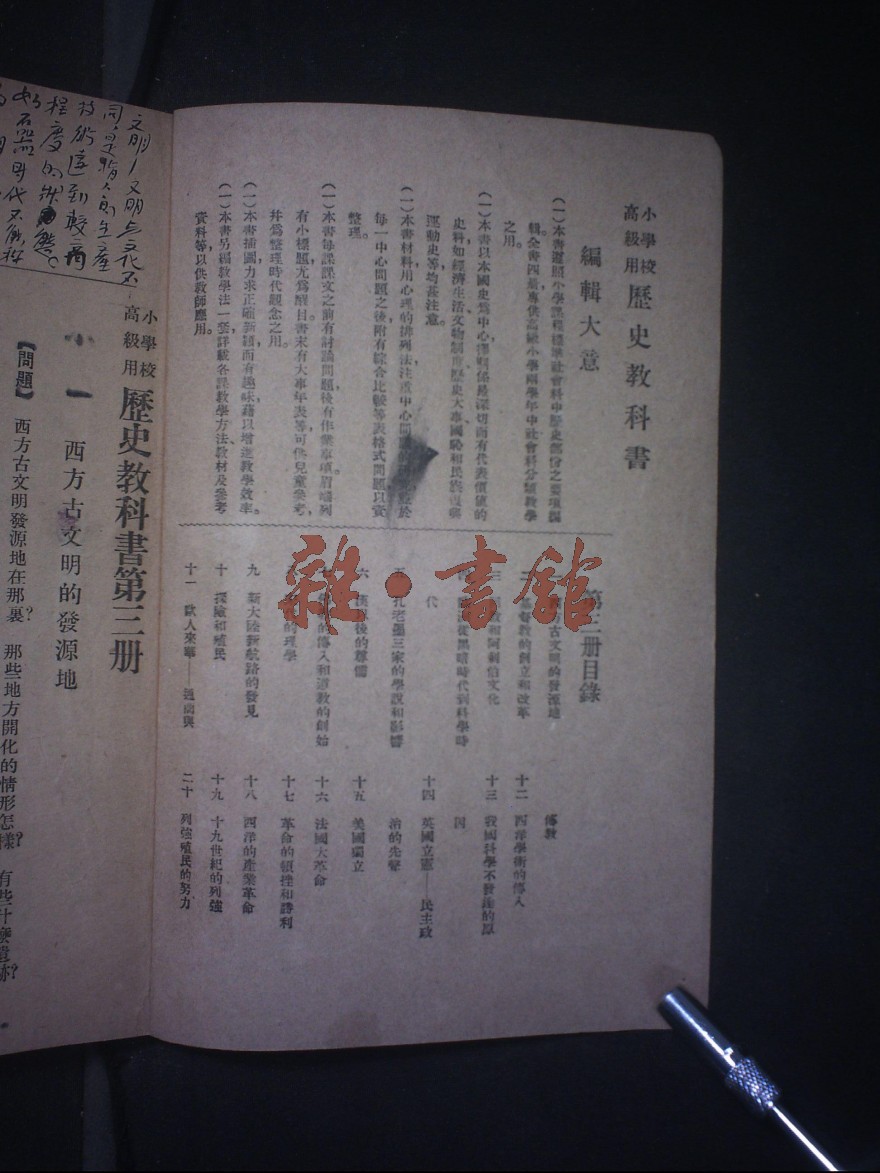 小學校
高級用
歷史教科書
編輯大意
(一)本書遵照小學課程標準社會科中歷史部份之要項編
輯全書四册專供高級小學兩學年中社會科分類教學
之用。
(一)本書以本國史爲中心擇關係最深切而有代表價值的
史料如經濟生活、文物制度、歷史大事、國恥和民族復興
運動史等均甚注意。
(一)本書材料用心理的排列法注重中心問題
每一中心問題之後附有綜合比較等表格式問題以資
整理。
(一)本書每課課文之前有討論問題後有作業事項眉端列
有小標題尤爲醒目書末有大事年表等可供兒童參考,
幷爲整理時代觀念之用。
(一)本書插圖力求正確新穎而有趣味藉以增進教學效率。
(一)本書另編教學法一套詳載各課教學方法、教材及參考
資料等以供教師應用。
第三册目錄
方古文明的發源地
二 基督教的創立和改革
三 教和阿剌伯文化
從黑暗時代到科學時
代
五 孔老墨三家的學說和影響
六 漢以後的尊儒
的傳入和道教的創始
的理學
九 新大陸新航路的發見
十 探險和殖民
十一 歐人來華——通商與
傳教
十二 西洋學術的傳入
十三 我國科學不發達的原
因
十四 英國立憲——民主政
治的先聲
十五 美國獨立
十六 法國大革命
十七 革命的頓挫和勝利
十八 西洋的產業革命
十九 十九世紀的列強
二十 列強殖民的努力
雜·書館
文明/文明与文化不
同是指人的生產
技術達到較高
程度的狀態。
如石器时代不能称
小學校
高級用
歷史教科書第三册
一 西方古文明的發源地
【問題】 西方古文明發源地在那裏? 那些地方開化的情形怎樣? 有些什麼遺跡?